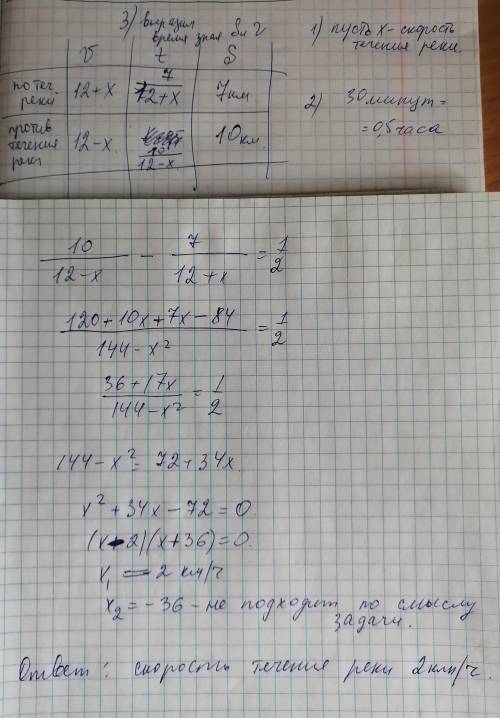 3) выразим
время зная S и V
1) пусть x - скорость
течения реки.
2) 30 минут =
= 0,5 часа
V t S
по теч. реки 12+x 7/12+x 7км
против течения реки 12-x 10/12-x 10км
10/12-x - 7/12+x = 1/2
120+10x+7x-84/144-x² = 1/2
36+17x/144-x² = 1/2
144-x² = 72+34x.
x²+34x-72=0.
(x-2)(x+36)=0.
x₁ = 2 км/ч
x₂ = -36 - не подходит по смыслу
задачи.
Ответ: скорость течение реки 2км/ч.